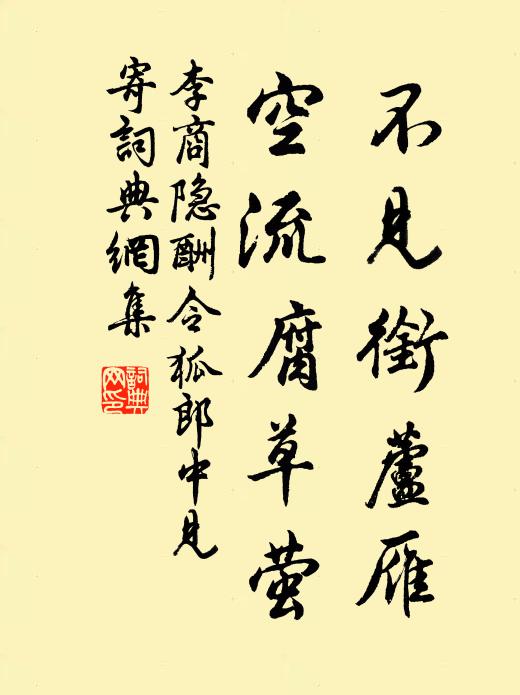 不见銜蘆雁
空流腐草萤
李商隐酬令狐郎中見
寄詞典網集
詞典
网印